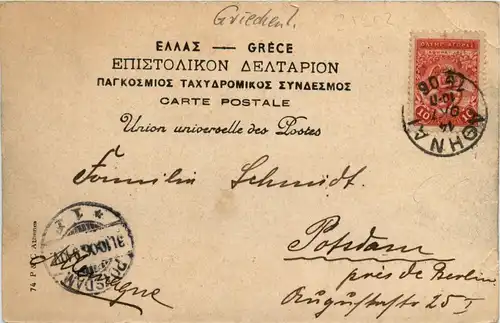 Griechenl.
ΕΛΛΑΣ — GRÈCE
ΕΠΙΣΤΟΛΙΚΟΝ ΔΕΛΤΑΡΙΟΝ
ΠΑΓΚΟΣΜΙΟΣ ΤΑΧΥΔΡΟΜΙΚΟΣ ΣΥΝΔΕΣΜΟΣ
CARTE POSTALE
Union universelle des Postes
ΑΘΗΝΑΙ
10
10
Familie Schmidt.
Potsdam
près de Berlin
Augustastr 25 I
Allemagne
POTSDAM
31.10.06
74 P
Athènes